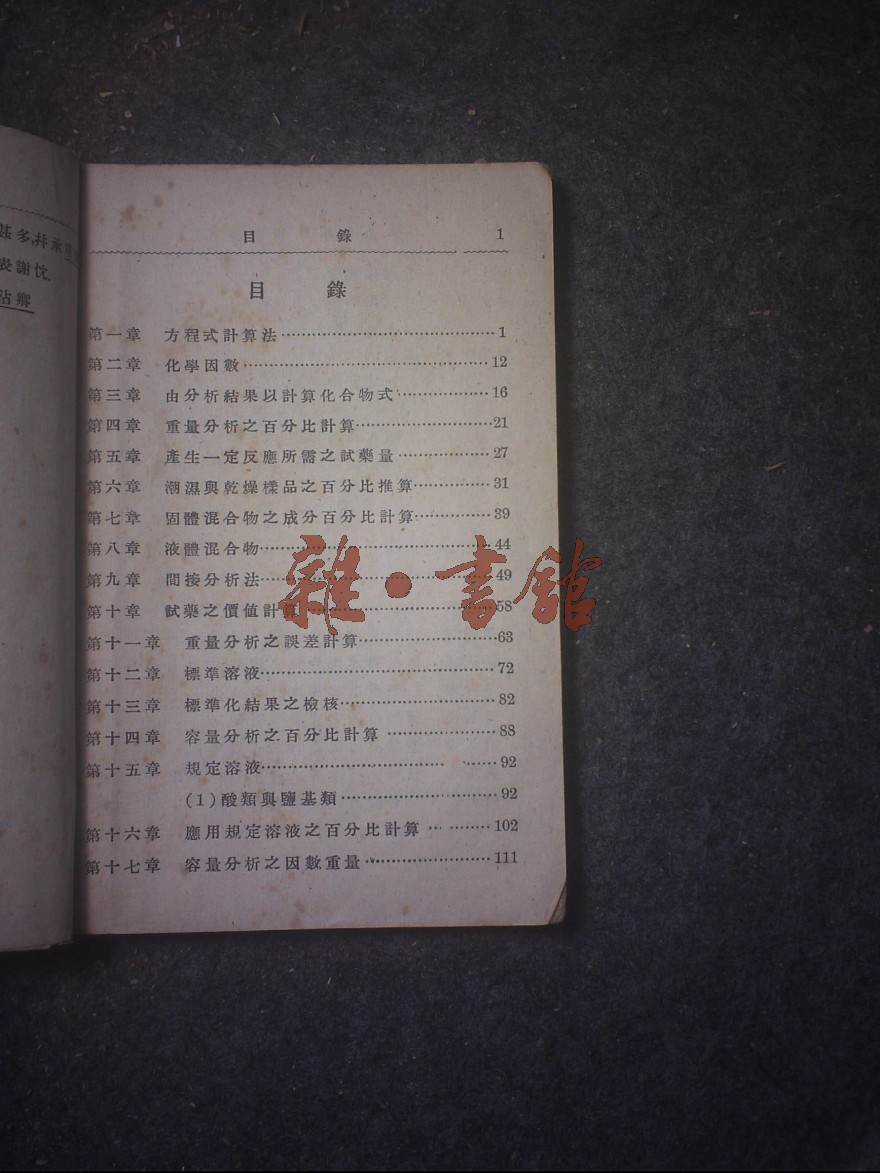 甚多,幷承
表謝忱.
沾卿
目 錄 1
目 錄
第一章 方程式計算法 1
第二章 化學因數 12
第三章 由分析結果以計算化合物式 16
第四章 重量分析之百分比計算 21
第五章 產生一定反應所需之試藥量 27
第六章 潮濕與乾燥樣品之百分比推算 31
第七章 固體混合物之成分百分比計算 39
第八章 液體混合物 44
第九章 間接分析法 49
第十章 試藥之價値計算 58
第十一章 重量分析之誤差計算 63
第十二章 標準溶液 72
第十三章 標準化結果之檢核 82
第十四章 容量分析之百分比計算 88
第十五章 規定溶液 92
(1)酸類與鹽基類 92
第十六章 應用規定溶液之百分比計算 102
第十七章 容量分析之因數重量 111
雜·書館